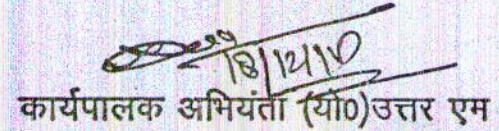 18/12/10
कार्यपालक अभियंता (यो0)उत्तर एम